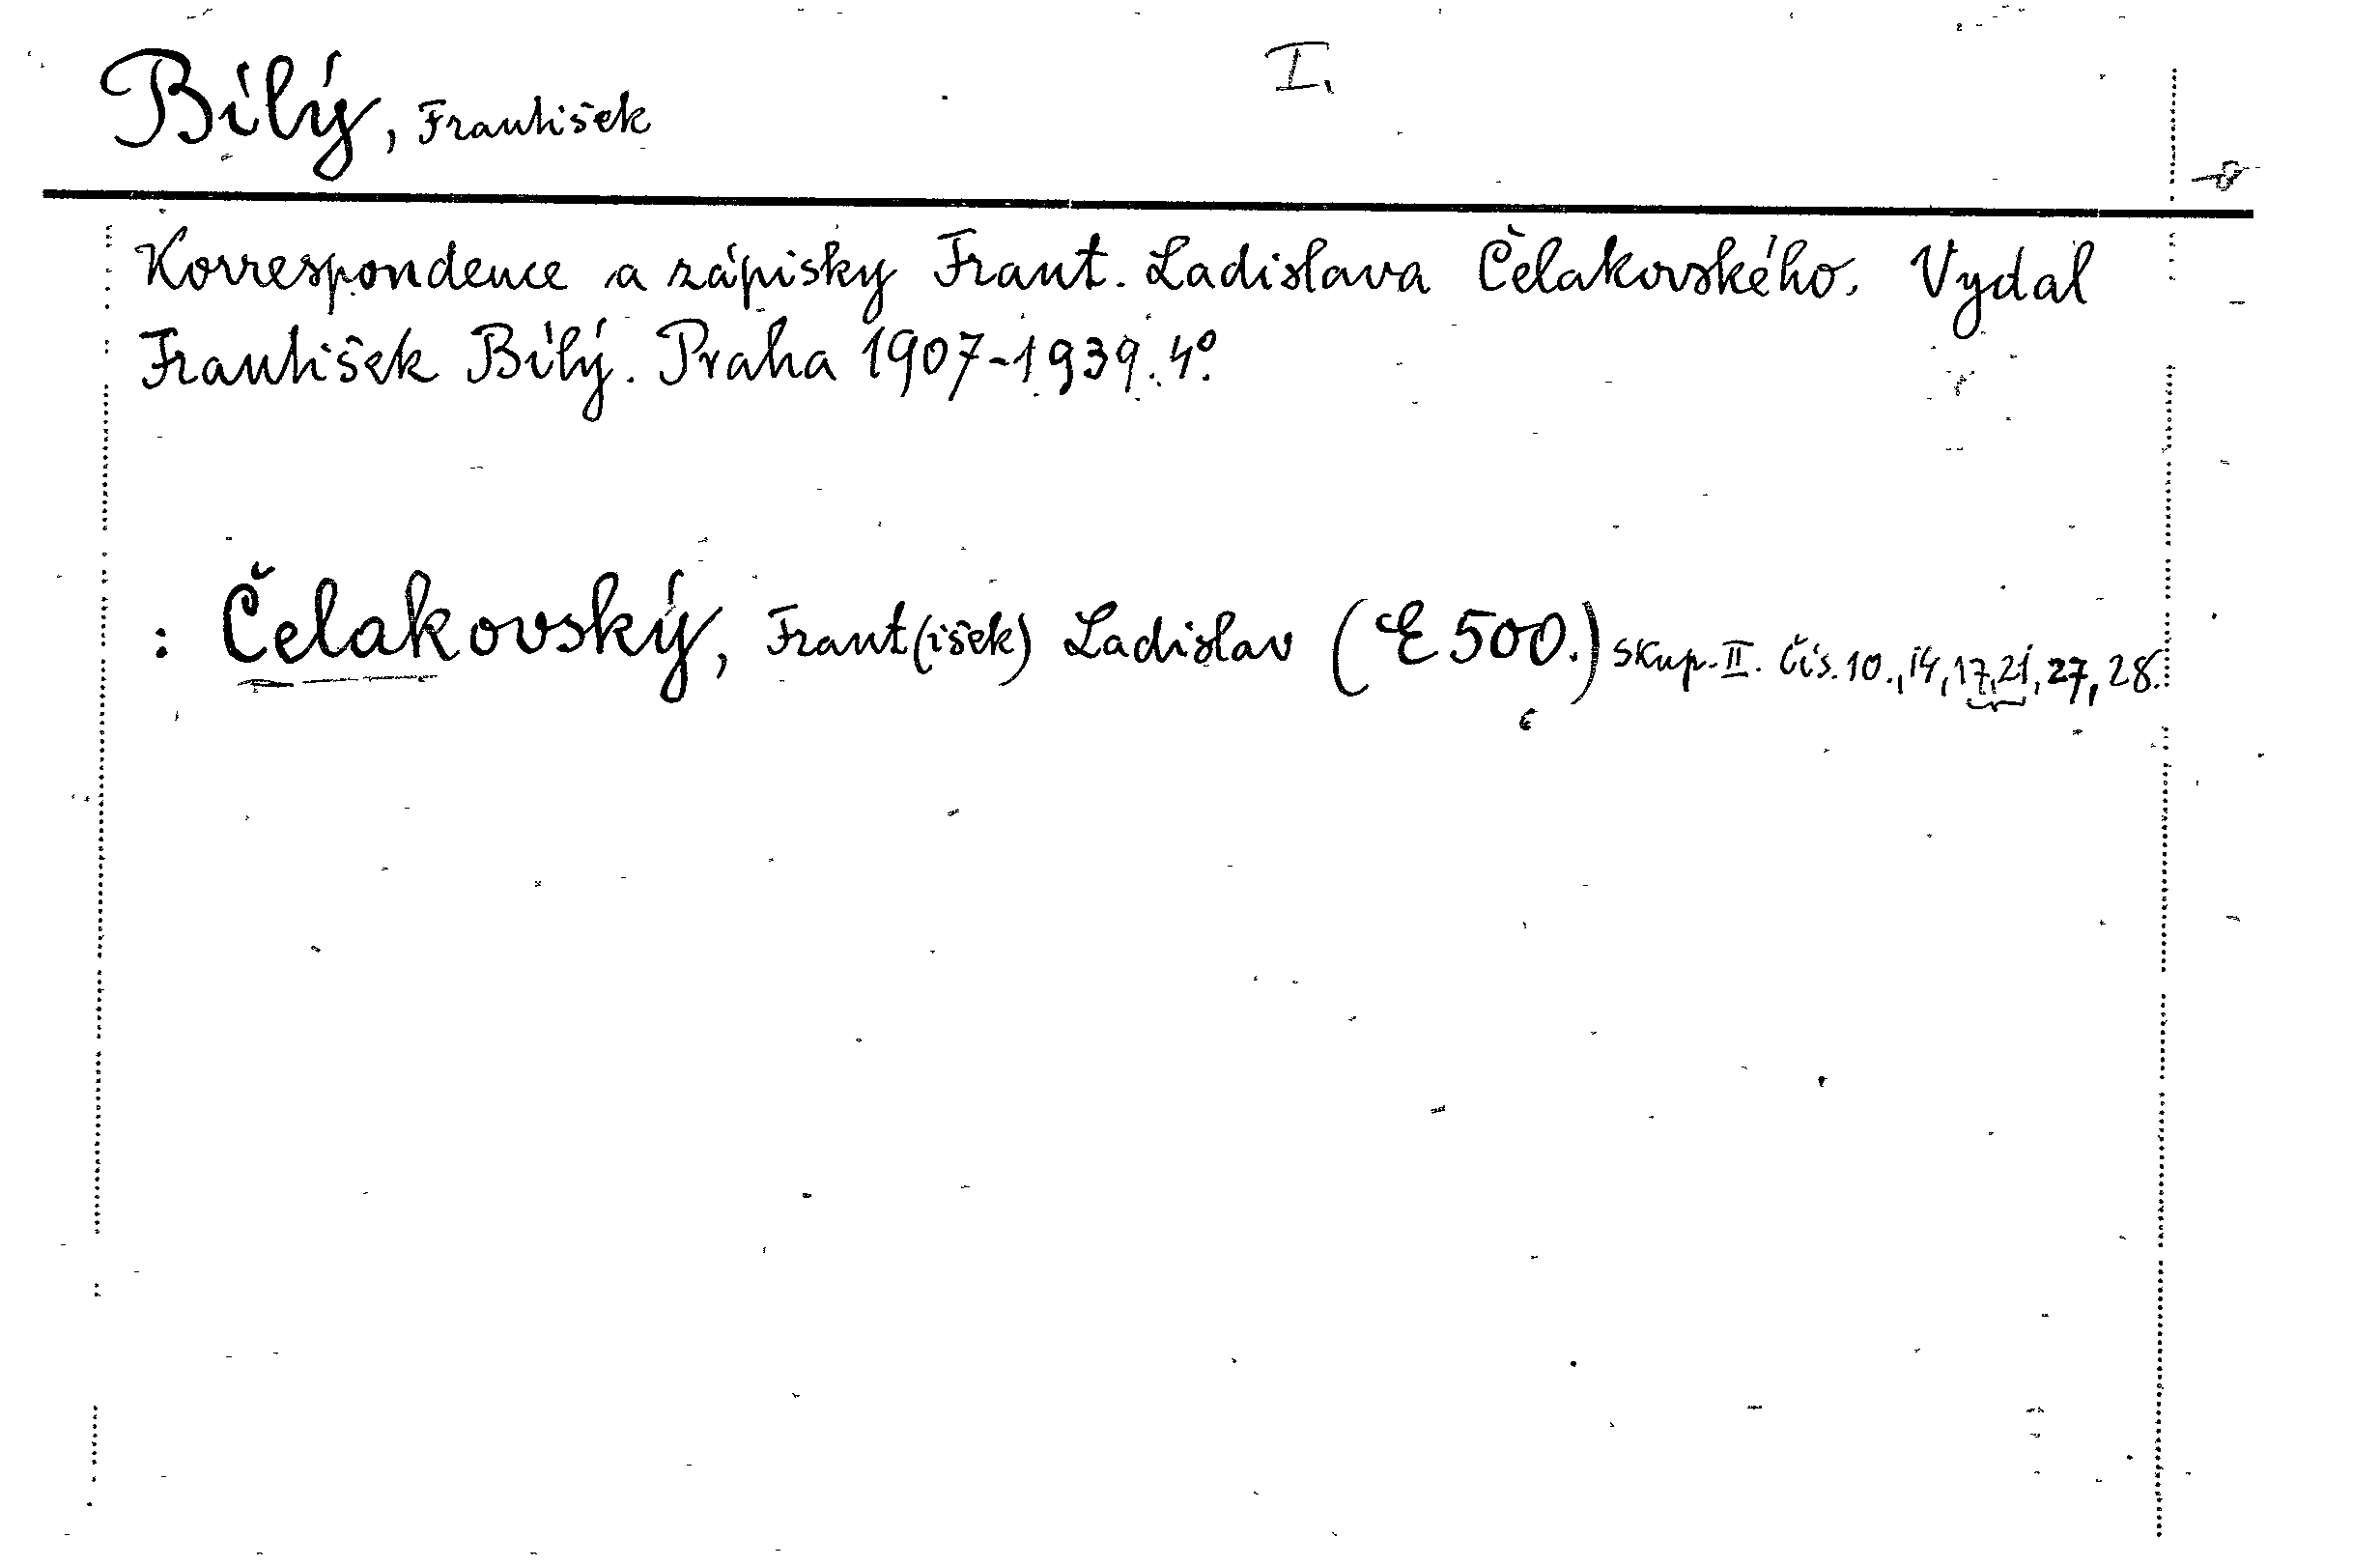 Bílý, František I.
Korrespondence a zápisky Frant. Ladislava Čelakovského. Vydal
František Bílý. Praha 1907-1939. 4º.
: Čelakovský, Frant(išek) Ladislav (E 500.) Skup. II. Čís. 10., 14, 17, 21, 27, 28.